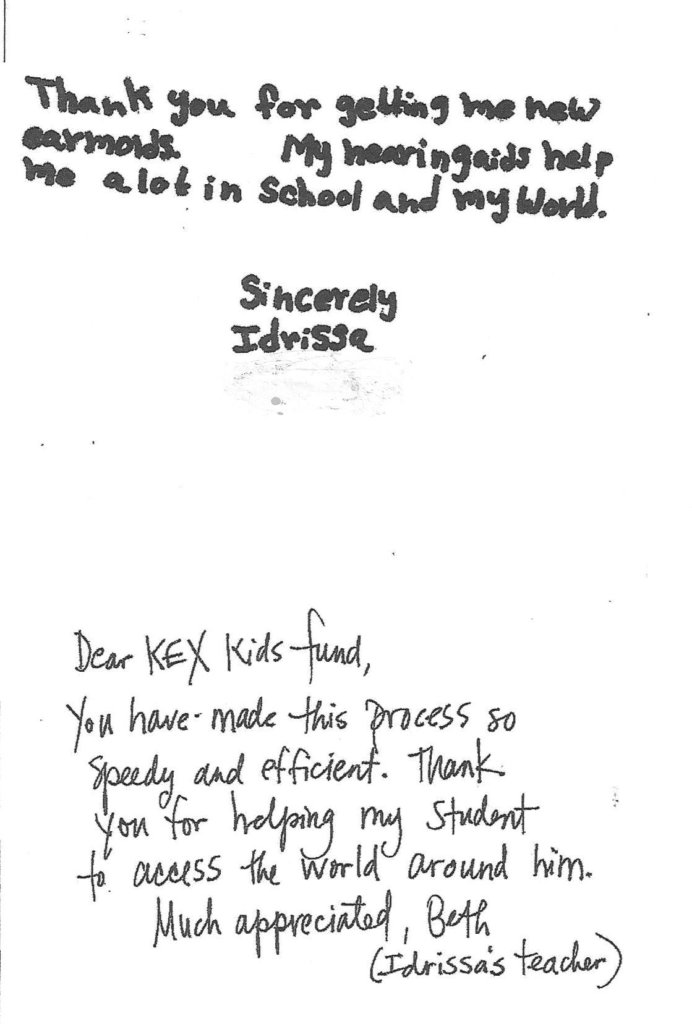 Thank you for getting me new
earmolds. My hearingaids help
me a lot in School and my World.
Sincerely
Idrissa
Dear KEX Kids fund,
You have made this process so
speedy and efficient. Thank
you for helping my student
to access the world around him.
Much appreciated, Beth
(Idrissa's teacher)